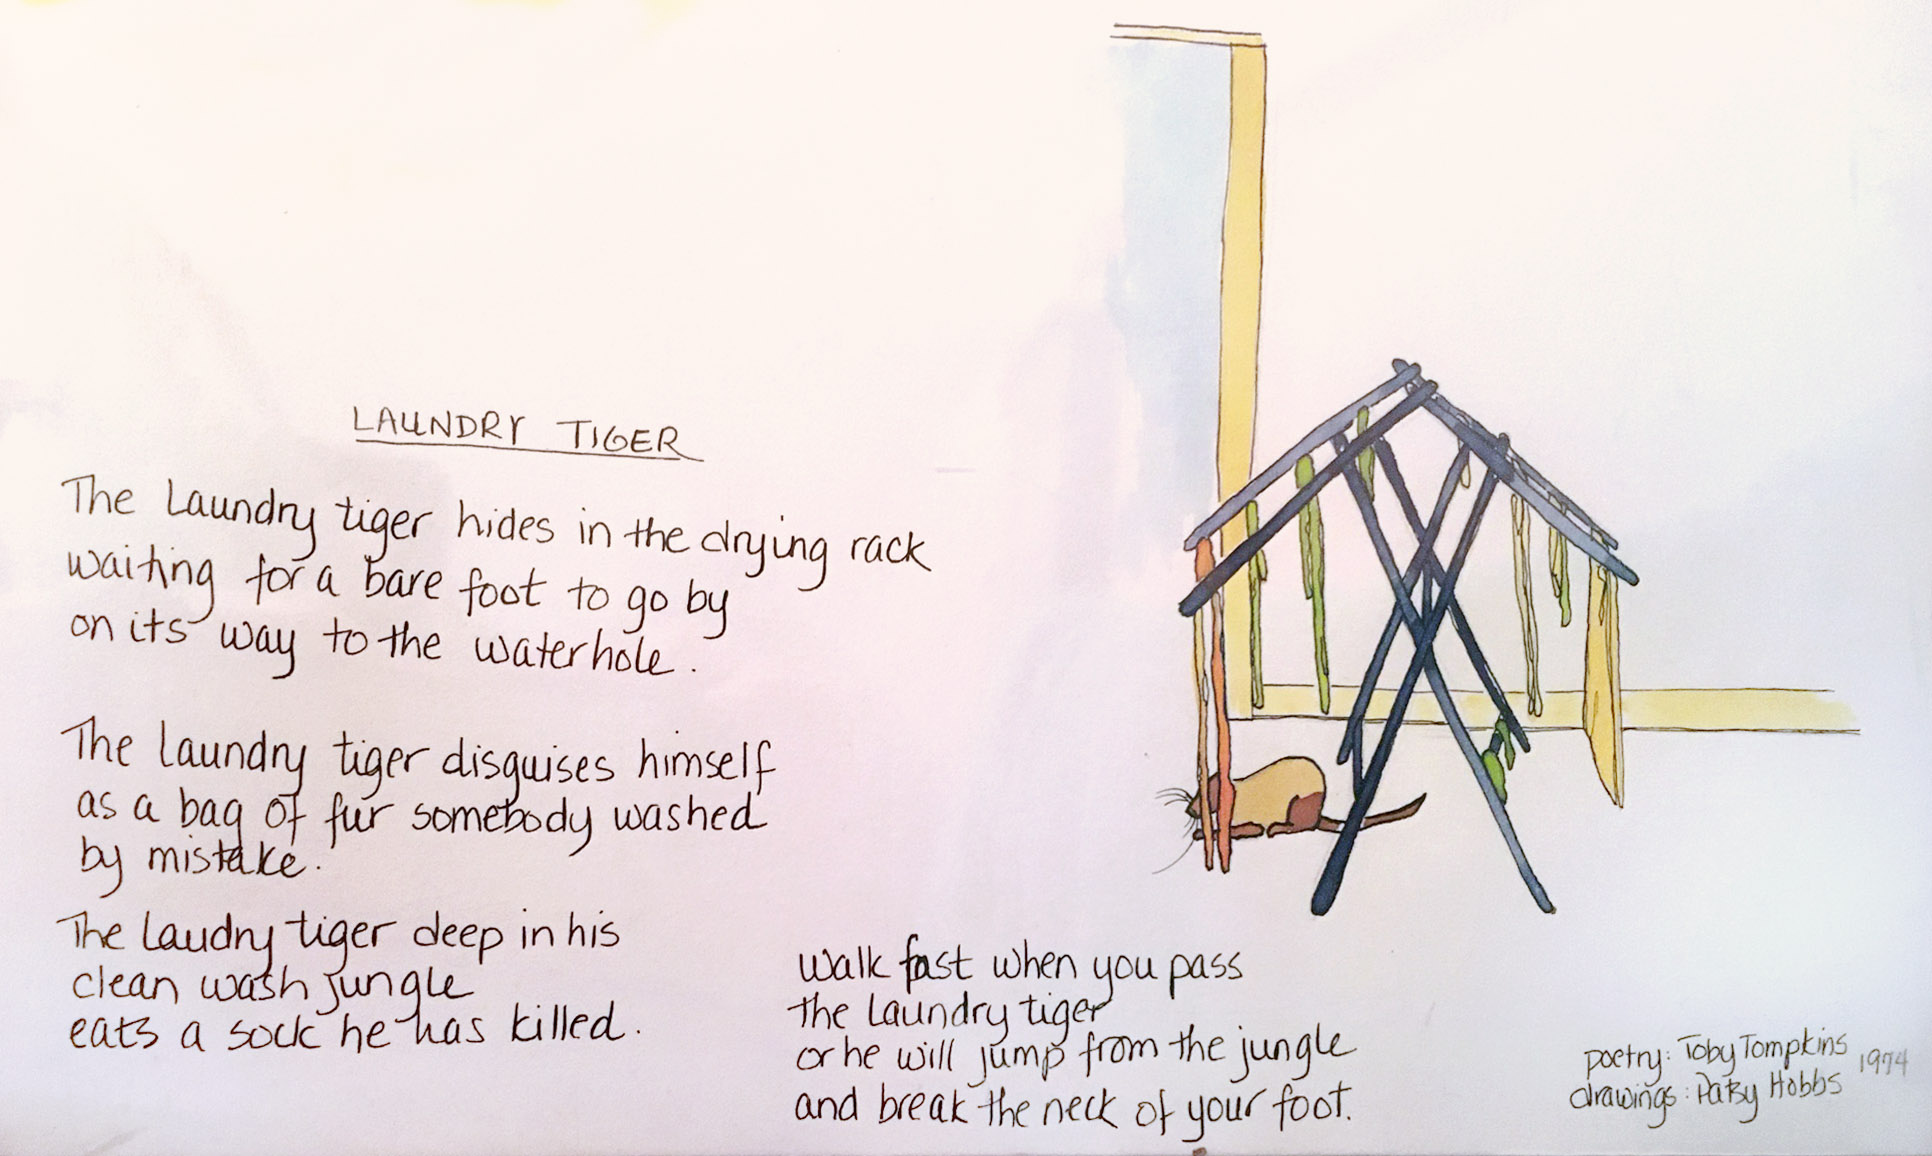 LAUNDRY TIGER
The Laundry tiger hides in the drying rack
waiting for a bare foot to go by
on its way to the waterhole.
The laundry tiger disguises himself
as a bag of fur somebody washed
by mistake.
The laudry tiger deep in his
clean wash jungle
eats a sock he has killed.
walk fast when you pass
the laundry tiger
or he will jump from the jungle
and break the neck of your foot.
poetry: Toby Tompkins
drawings: Patsy Hobbs
1974